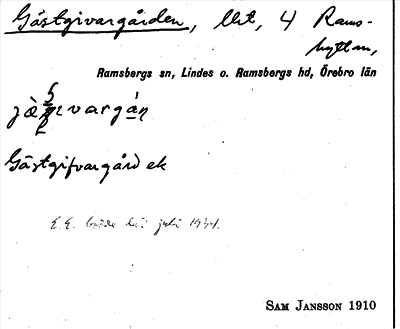 Gästgivargården, lht, 4 Rams-
hyttan,
Ramsbergs sn, Lindes o. Ramsbergs hd, Örebro län
Gästgifvargård ek
E. E. juli 1934.
SAM JANSSON 1910